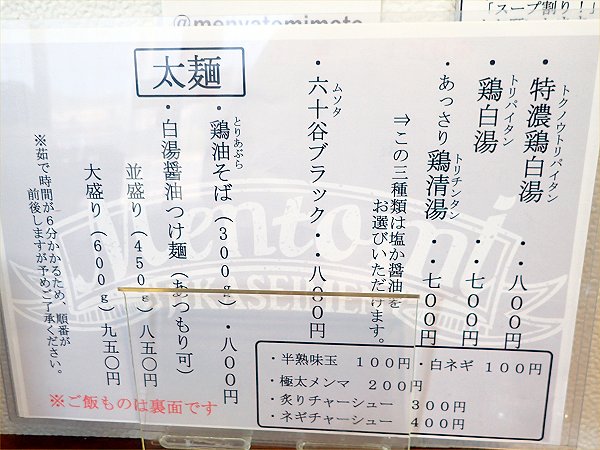 @menyatomimoto
「スープ割り！」
トクノウトリパイタン
・特濃鶏白湯・・八〇〇円
トリパイタン
・鶏白湯・・七〇〇円
トリチンタン
・あっさり鶏清湯・・七〇〇円
⇒この三種類は塩か醤油を
お選びいただけます。
ムソタ
・六十谷ブラック・・八〇〇円
太麺
とりあぶら
・鶏油そば（300g）・八〇〇円
・白湯醤油つけ麺（あつもり可）
並盛り（450g）八五〇円
大盛り（600g）九五〇円
※茹で時間が6分かかるため、順番が
前後しますが予めご了承ください。
・半熟味玉 100円・白ネギ 100円
・極太メンマ 200円
・炙りチャーシュー 300円
・ネギチャーシュー 400円
※ご飯ものは裏面です
Mentomi